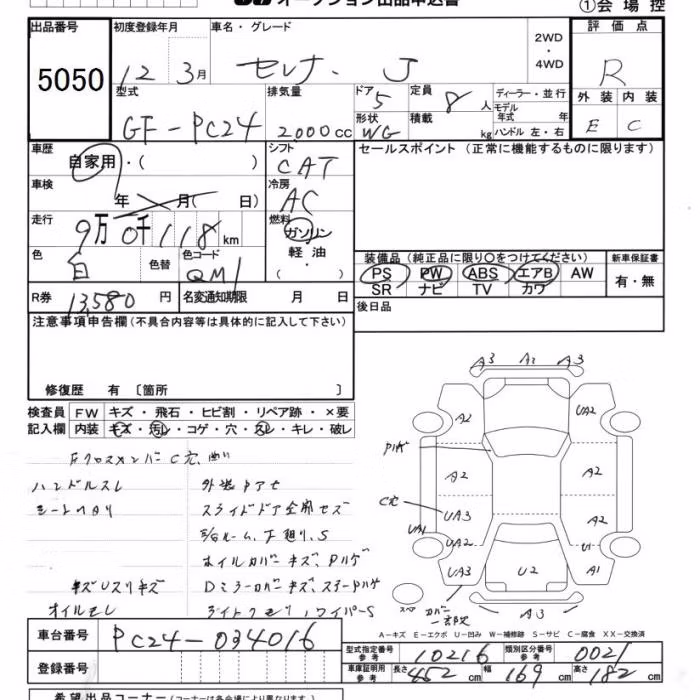 オークション出品申込書
①会場控
出品番号 初度登録年月 車名・グレード 2WD・4WD 評価点
5050 12 3月 セレナ・J R
型式 排気量 ドア 5 定員 8人 ディーラー・並行 外装 内装
GF-PC24 2,000cc 形状 WG 積載 kg モデル年式 年式 ハンドル 左・右 E C
車歴 自家用・( ) シフト CAT セールスポイント(正常に機能するものに限ります)
車検 年 月( 日) 冷房 AC
走行 9万0千118km 燃料 ガソリン 軽油・( )
色 白 色替 色コード QM1 装備品(純正品に限り○をつけてください) 新車保証書
PS PW ABS エアB AW 有・無
SR ナビ TV カワ
R券 13,580円 名変通知期限 月 日 後日品
注意事項申告欄(不具合内容等は具体的に記入して下さい)
修復歴 有 〔箇所 〕
検査員 FW キズ・飛石・ヒビ割・リペア跡・×要
記入欄 内装 キズ・汚レ・コゲ・穴・スレ・キレ・破レ
Fクロスメンバー C穴、曲り
ハンドルスレ
スライドドア全開セズ
ホイルカバーキズ、Pハゲ
オイルモレ
A3 A2 A3
A2 UA2
Pハゲ
A2 A2
C穴
UA3 A2
UA1 UA2 U1
UA3 U2 A1
A3
A-キズ E-エクボ U-凹み W-補修跡 S-サビ C-腐食 XX-交換済
車台番号 PC24-034016
型式指定番号 参考 10216 類別区分番号 参考 0021
登録番号
車庫証明用 参考 長さ 452cm 幅 169cm 高さ 182cm
希望出品コーナー(コーナーは各会場により異なります)